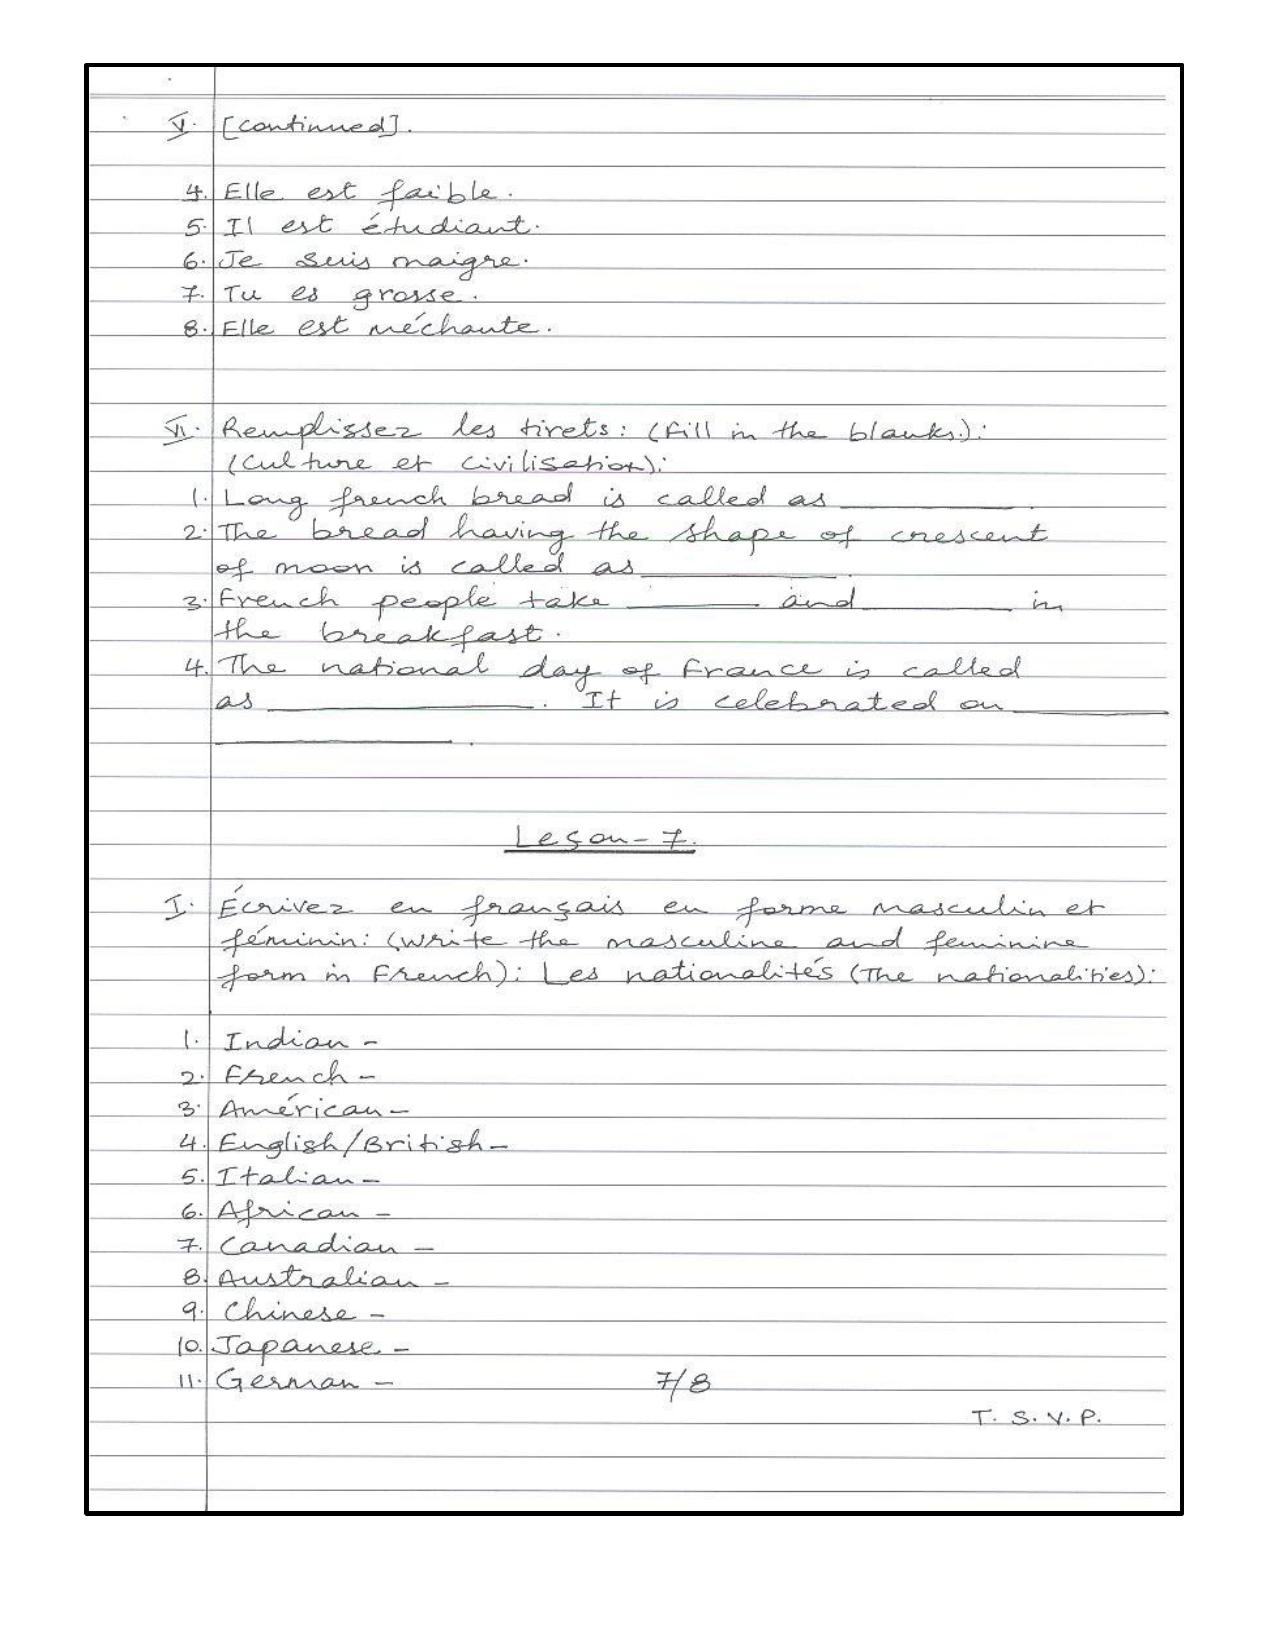 V. [continued].
4. Elle est faible.
5. Il est étudiant.
6. Je suis maigre.
7. Tu es grosse.
8. Elle est méchante.
VI. Remplissez les tirets: (Fill in the blanks.):
(Culture et civilisation):
1. Long french bread is called as __________.
2. The bread having the shape of crescent
of moon is called as __________.
3. French people take ________ and ________ in
the breakfast.
4. The national day of France is called
as ______________. It is celebrated on ________
____________.
Leçon-7.
I. Écrivez en français en forme masculin et
féminin: (Write the masculine and feminine
form in French): Les nationalités (The nationalities):
1. Indian -
2. French -
3. Américan -
4. English/British -
5. Italian -
6. African -
7. Canadian -
8. Australian -
9. Chinese -
10. Japanese -
11. German -
7/8
T. S. V. P.